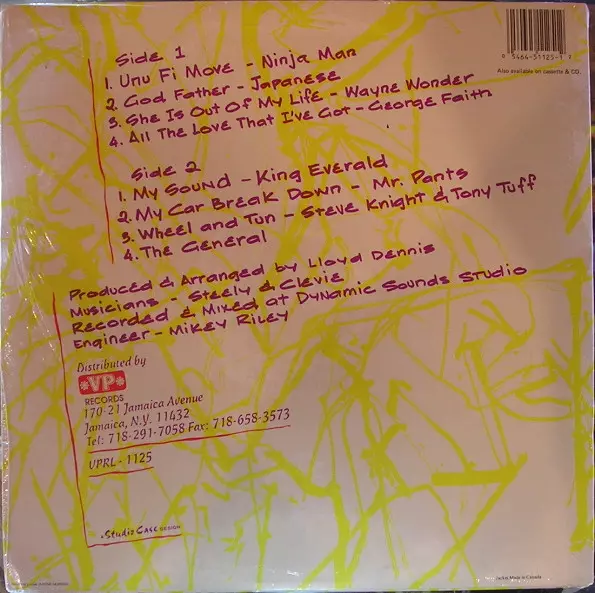 0 5464-51125-1 7
Also available on cassette & CD.
Side 1
1. Unu Fi Move - Ninja Man
2. God Father - Japanese
3. She Is Out Of My Life - Wayne Wonder
4. All The Love That I've Got - George Faith
Side 2
1. My Sound - King Everald
2. My Car Break Down - Mr. Pants
3. Wheel and Tun - Steve Knight & Tony Tuff
4. The General
Produced & Arranged by Lloyd Dennis
Musicians - Steely & Clevie
Recorded & Mixed at Dynamic Sounds Studio
Engineer - Mikey Riley
Distributed by
VP
RECORDS
170-21 Jamaica Avenue
Jamaica, N.Y. 11432
Tel: 718-291-7058 Fax: 718-658-3573
VPRL - 1125
Studio Case DESIGN
Jacket Made in Canada